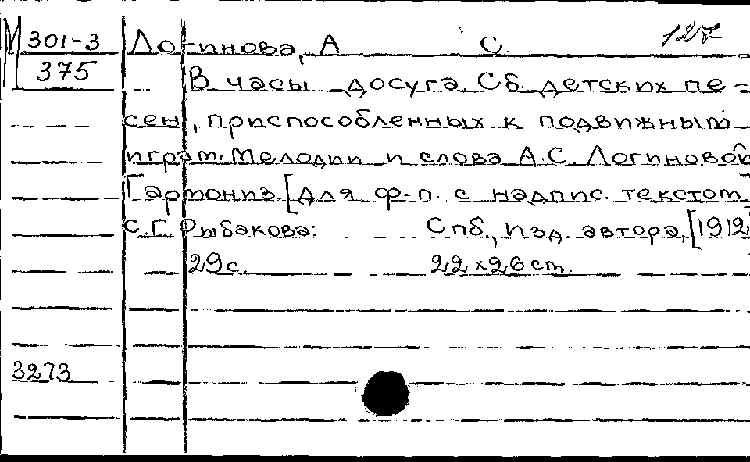 М 301-3 Логинова, А С. 127
375 В часы досуга. Сб. детских пе=
сен, приспособленных к подвижным
играм. Мелодии и слова А.С. Логиновой
Гармониз. [для ф-п. с надпис. текстом]
С.Г. Рыбакова: Спб., изд. автора, [1912]
29 с. 22x26 cm.
3273